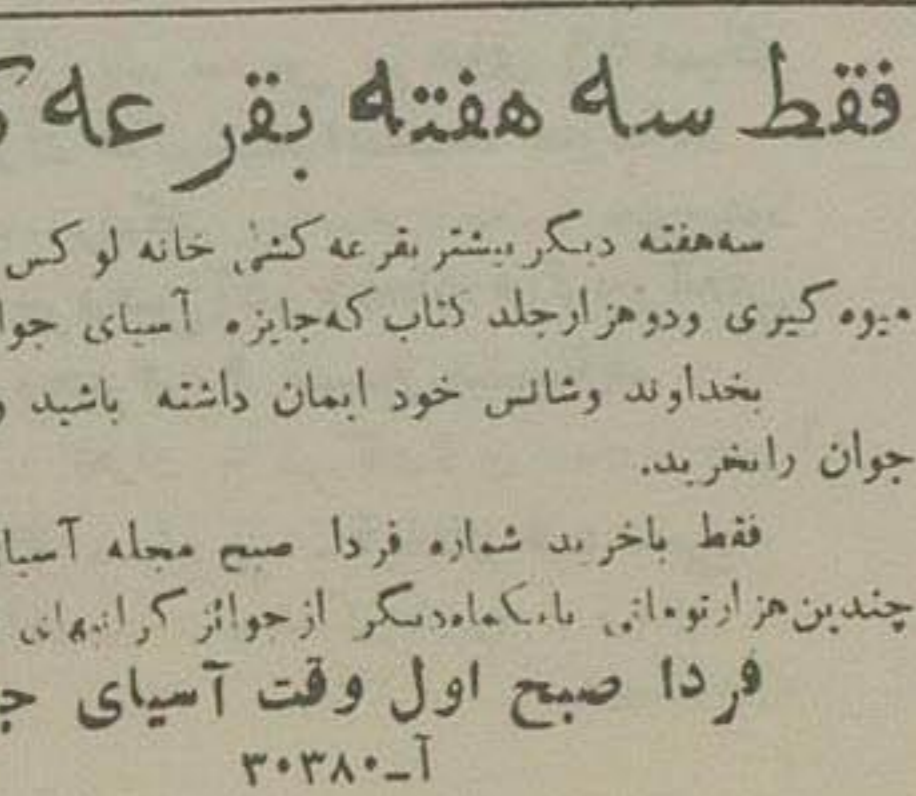 فقط سه هفته بقرعه
سه‌هفته دیگر بیشتر بقرعه کشی خانه لوکس
میوه گیری ودوهزارجلد کتاب که‌جایزه آسیای جوا
بخداوند وشانس خود ایمان داشته باشید و
جوان رابخرید.
فقط باخرید شماره فردا صبح مجله آسیا
چندین‌هزارتومانی یایکماه‌دیگر ازجوائز گرانبهای
فردا صبح اول وقت آسیای ج
آ–۳۰۳۸۰